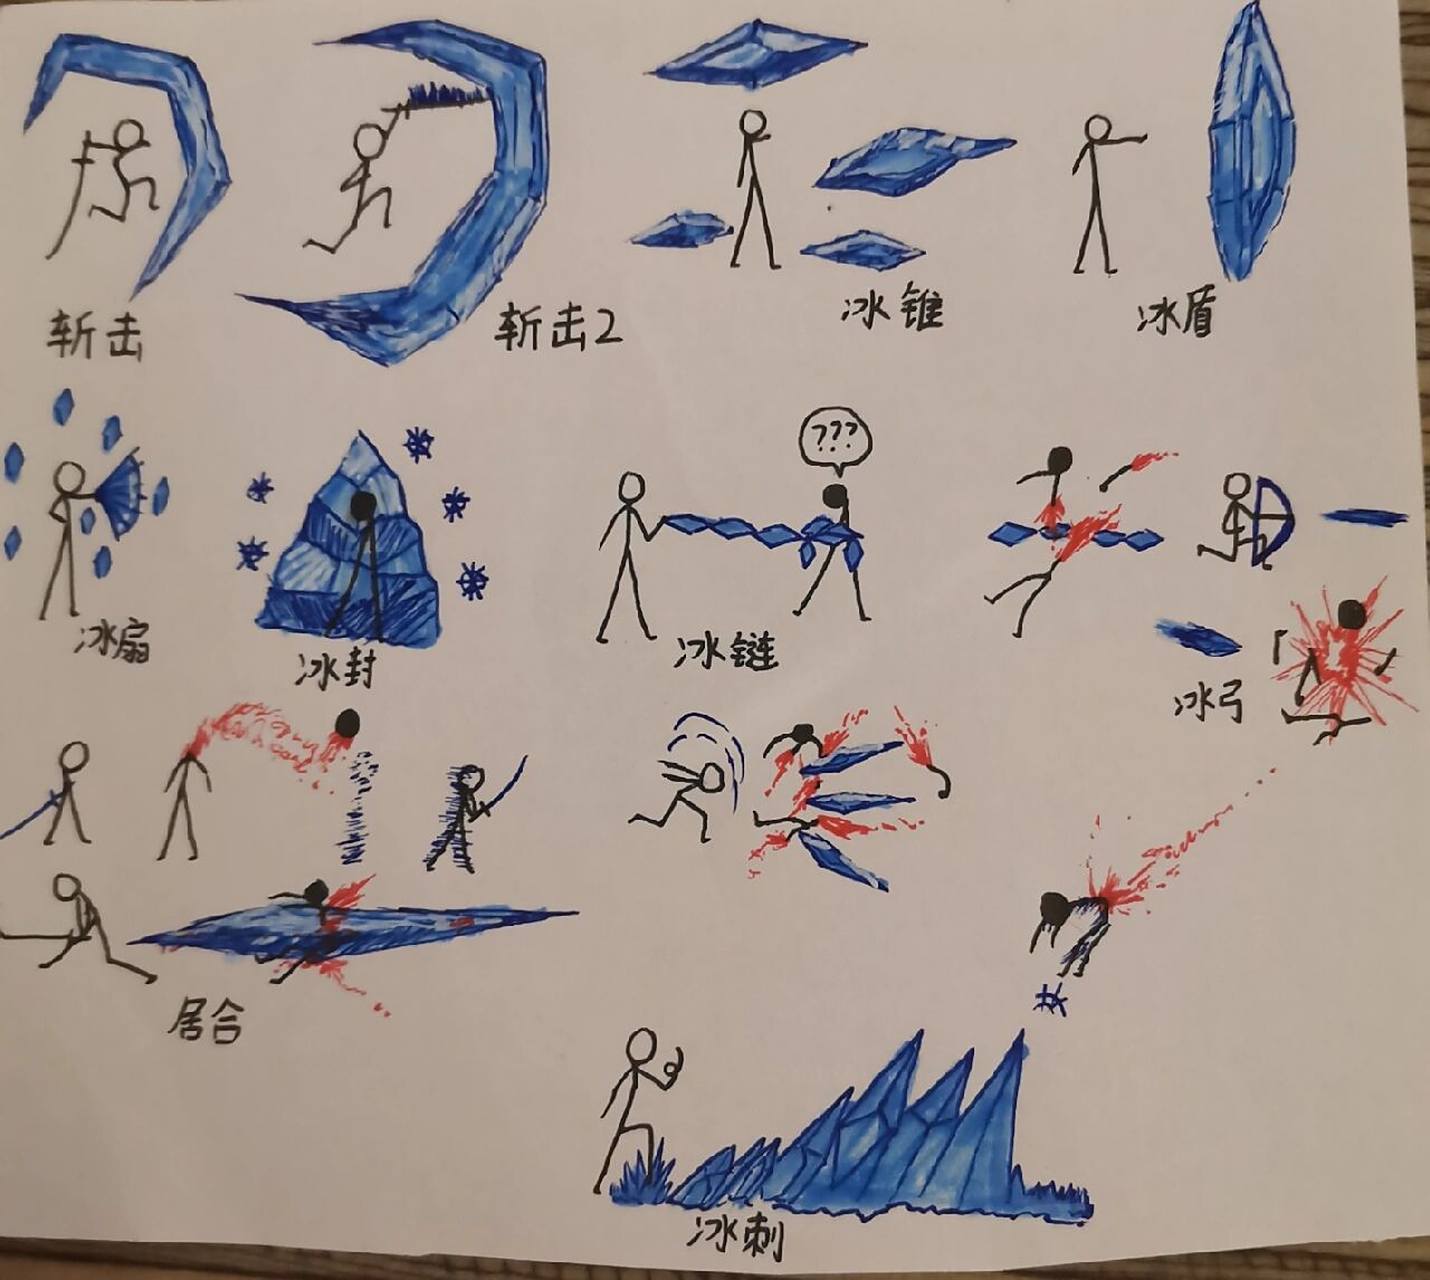 斩击
斩击2
冰锥
冰盾
???
冰扇
冰封
冰链
冰弓
居合
冰刺